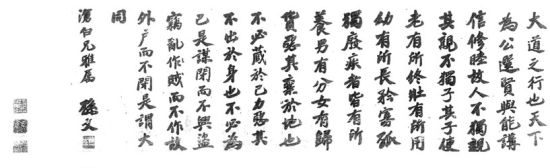 大道之行也天下
為公選賢與能講
信修睦故人不獨親
其親不獨子其子使
老有所終壯有所用
幼有所長矜寡孤
獨廢疾者皆有所
養男有分女有歸
貨惡其棄於地也
不必藏於己力惡其
不出於身也不必為
己是謀閉而不興盜
竊亂作賊而不作故
外户而不閉是謂大
同
滄白兄雅屬
孫文